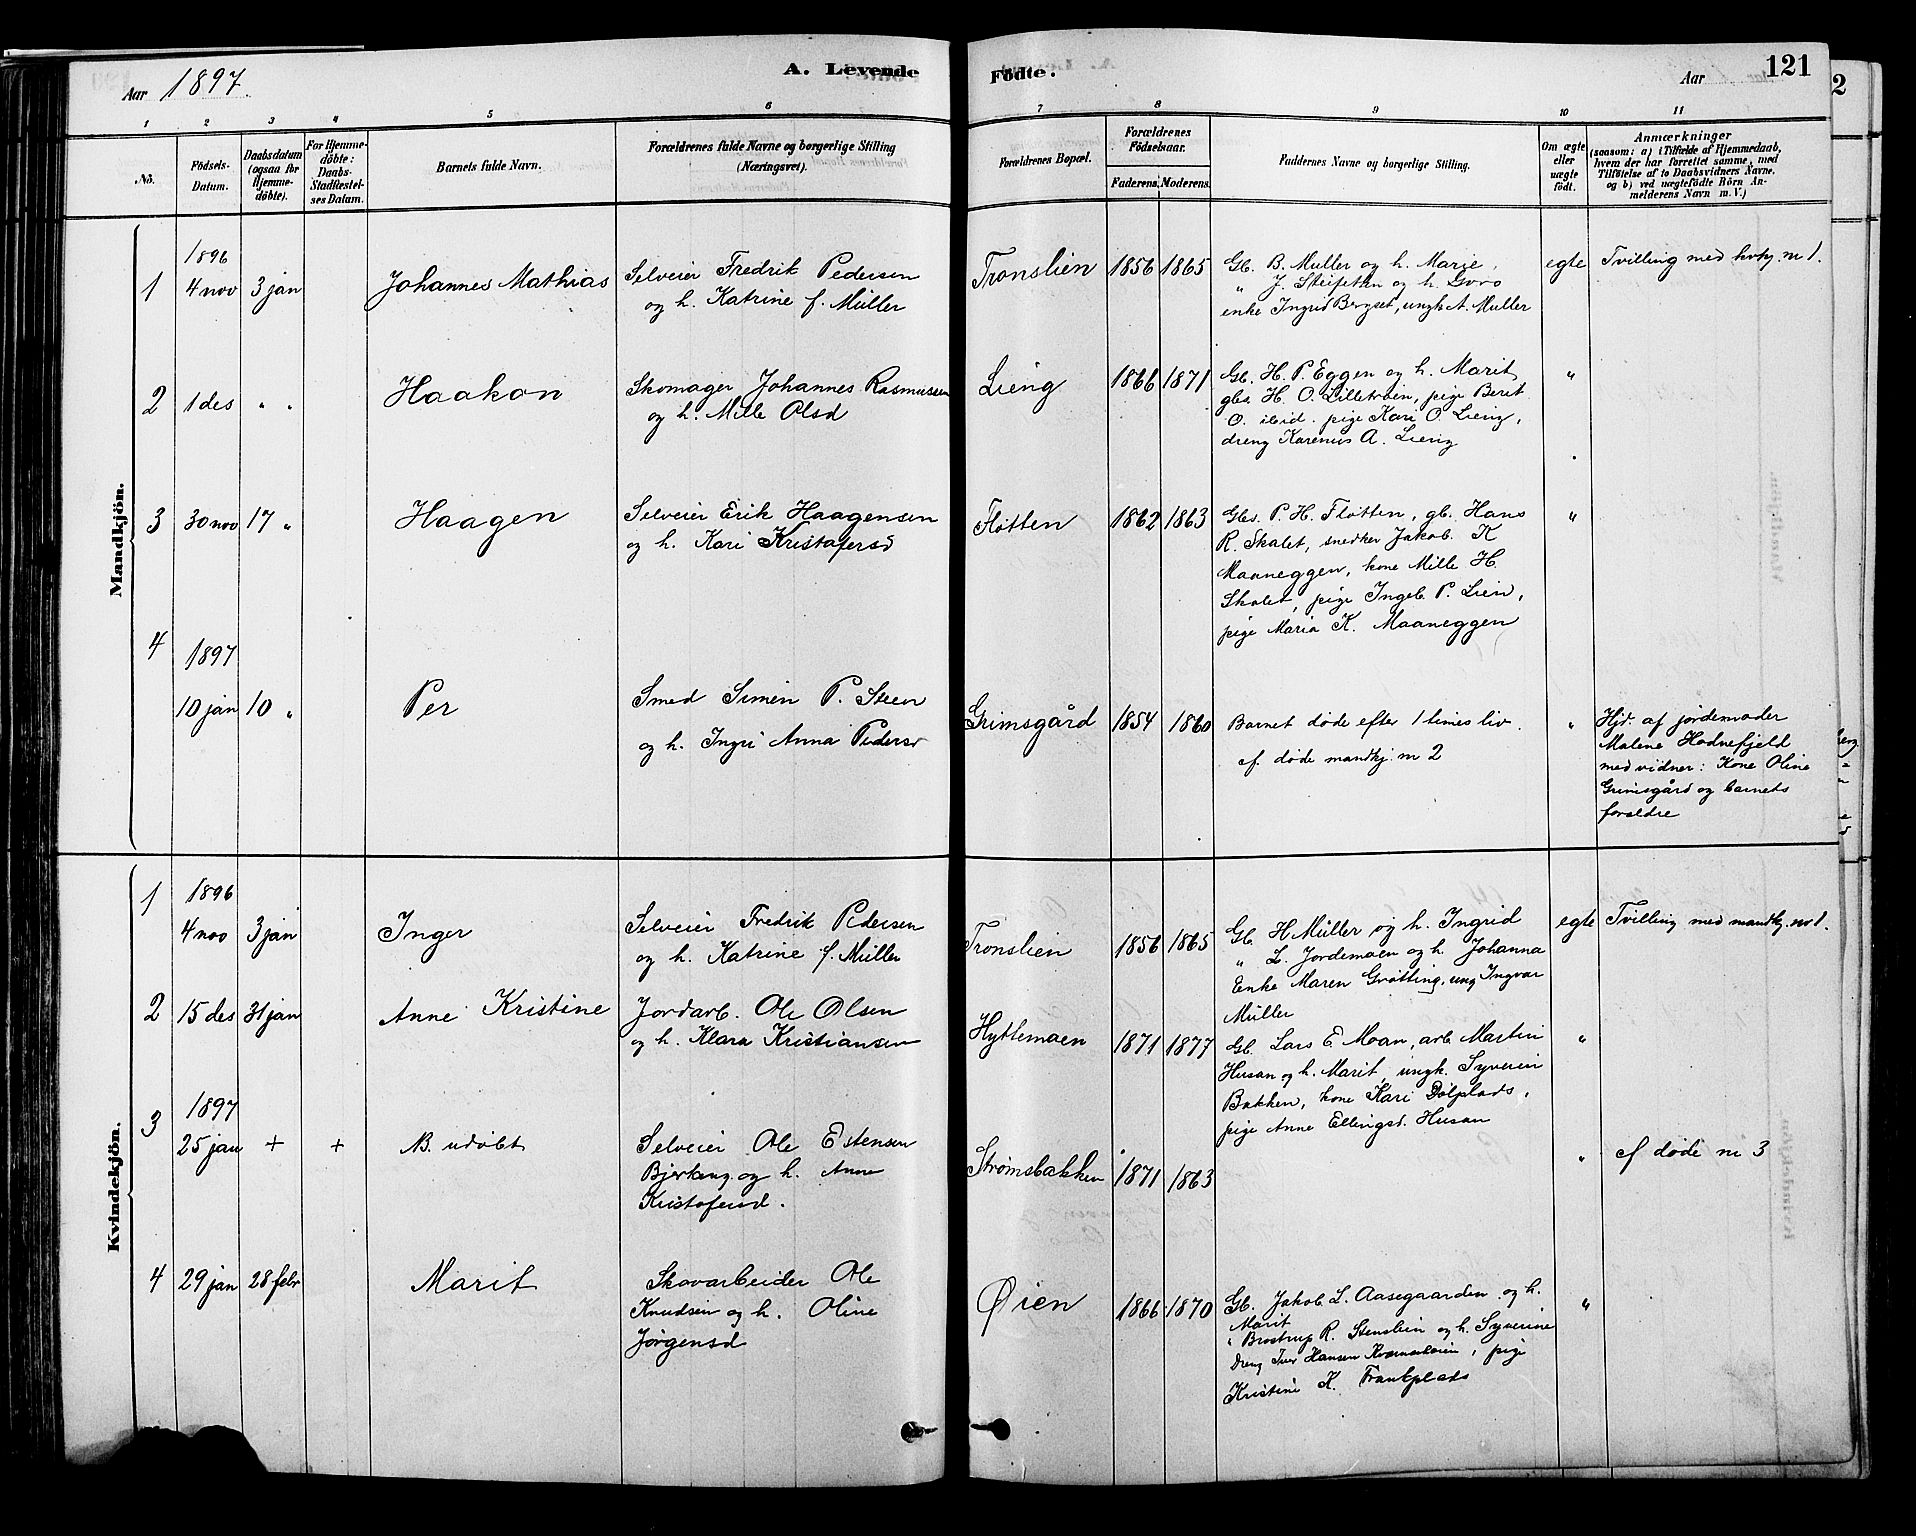 Aar 1897. A. Levende Födte. Aar 121
2
1 2 3 4 5 6 7 8 9 10 11
No.
Födsels-Datum.
Daabsdatum (ogsaa for Hjemme-döbte).
For Hjemme-döbte: Daabs-Stadfæstel-ses Datum.
Barnets fulde Navn.
Forældrenes fulde Navne og borgerlige Stilling
(Næringsvei).
Forældrenes Bopæl.
Forældrenes Födselsaar.
Faderens. Moderens.
Faddernes Navne og borgerlige Stilling.
Om ægte eller uægte födt.
Anmærkninger
(saasom: a) i Tilfælde af Hjemmedaab,
hvem der har forrettet samme, med
Tilföielse af to Daabsvidners Navne.
og b) ved uægtefödte Börn An-
melderens Navn m. V.)
Mandkjön.
1 1896 4 nov 3 jan Johannes Mathias
Selveier Fredrik Pedersen
og h. Katrine f. Müller
Tronslien 1856 1865
Gb. B. Muller og h. Marie,
" J. Steifetten og h. Goro
enke Ingrid Bergset, ungk A. Muller
egte Tvilling med kvkj. n 1.
2 1 des " " Haakon
Skomager Johannes Rasmussen
og h. Mille Olsd
Lieng 1866 1871
Gb. H. P. Eggen og h. Marit
gbs. H. O. Lilletrøen, pige Berit
O. ibid. pige Kari O. Lieng,
dreng Karenius A. Lieng
"
3 30 nov 17 " Haagen
Selveier Erik Haagensen
og h. Kari Kristofersd
Fløtten 1862 1863
Gbs. P. H. Fløtten, gb. Hans
R. Skalet, snedker Jakob K
Maaneggen, kone Mille H.
Skalet, pige Ingeb. P. Lien,
pige Maria K. Maaneggen
"
4 1897
10 jan 10 " Per
Smed Simen P. Steen
og h. Ingri Anna Pedersd
Grimsgård 1854 1860
Barnet døde efter 1 times liv.
cf. døde mandkj. n 2
"
Hjd. af jordemoder
Malene Hodnefjeld
med vidner: Kone Oline
Grimsgård og barnets
forældre
Kvindekjön.
1 1896
4 nov 3 jan Inger
Selveier Fredrik Pedersen
og h. Katrine f. Müller
Tronslien 1856 1865
Gb. H Müller og h. Ingrid
" L. Jordemoen og h. Johanna
Enke Maren Grøtting, ung Ingvar
Müller
egte Tvilling med mandkj. no 1.
2 15 des 31 jan Anne Kristine
Jordarb. Ole Olsen
og h. Klara Kristiansen
Hyttemoen 1871 1877
Gb. Lars E. Moan, arb. Martin
Husan og h. Marit, ungk. Syverin
Bakken, kone Kari Dølplads,
pige Anne Ellingsd. Husan
"
3 1897
25 jan + + B. udøbt
Selveier Ole Estensen
Bjørkeng og h. Anne
Kristofersd.
Strømsbakken 1871 1863
" cf døde n 3
4 29 jan 28 febr Marit
Skovarbeider Ole
Knudsen og h. Oline
Jørgensd
Øien 1866 1870
Gb. Jakob L. Aasegaarden og h.
Marit
" Brostrup R. Stenslien og h. Syverine
Dreng Iver Hansen, pige
Kristine K.
"